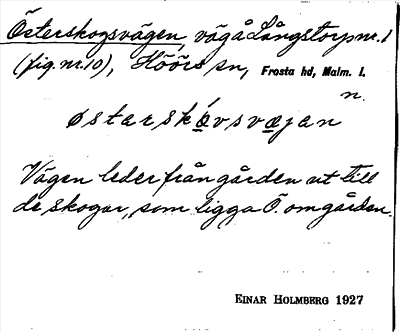 Österskogsvägen, väg å Långstorp nr. 1
(fig. nr. 10), Höörs sn, Frosta hd, Malm. l.
n.
østarskǻvsvæjan
Vägen leder från gården ut till
de skogar, som ligga Ö. om gården.
EINAR HOLMBERG 1927